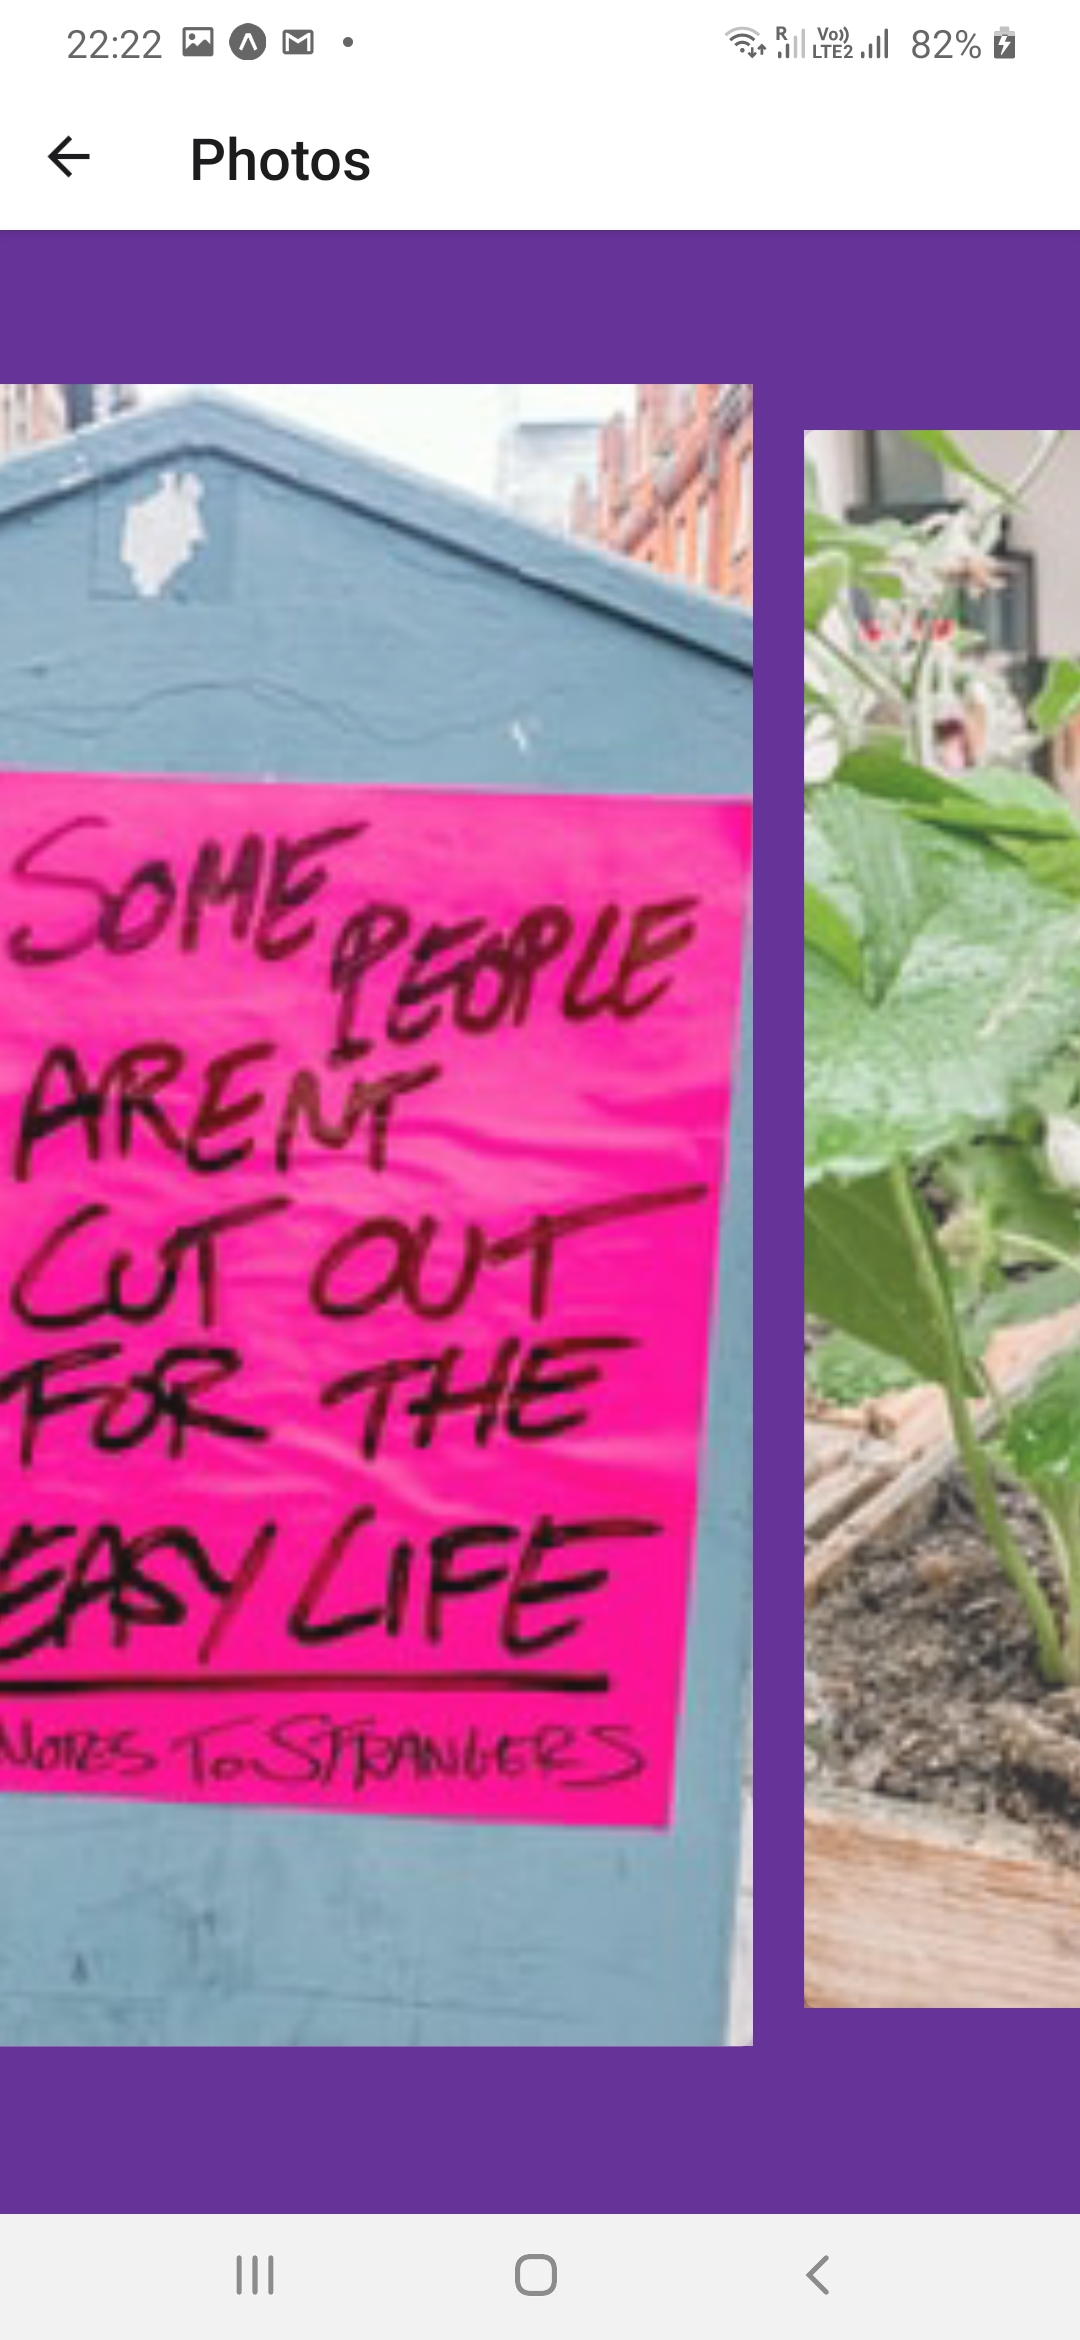 22:22
R Vo)) LTE2 82%
Photos
SOME PEOPLE
ARENT
CUT OUT
FOR THE
EASY LIFE
NOTES TO STRANGERS